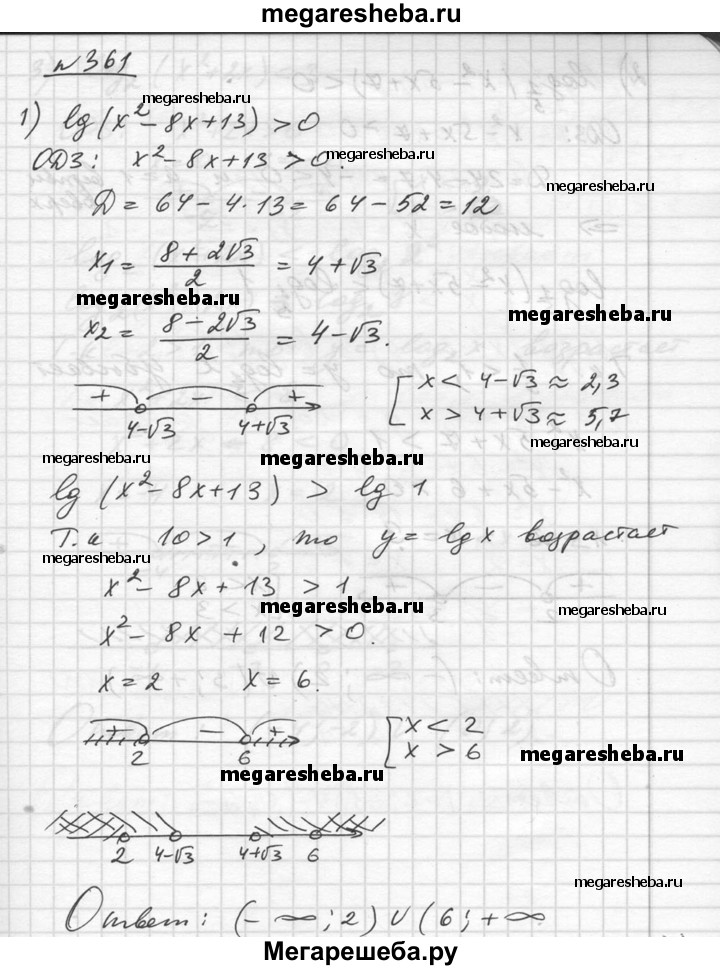 megaresheba.ru
№361
megaresheba.ru
1) lg(x²-8x+13)>0
ОДЗ: x²-8x+13>0.
megaresheba.ru
Д= 64-4·13= 64-52=12
x₁= (8+2√3)/2 = 4+√3
megaresheba.ru
megaresheba.ru
x₂= (8-2√3)/2 = 4-√3.
+ - +
4-√3 4+√3
[ x< 4-√3≈ 2,3
x> 4+√3≈ 5,7
megaresheba.ru
megaresheba.ru megaresheba.ru
lg (x²-8x+13) > lg 1
Т.к 10>1, то y= lg x возрастает
megaresheba.ru
x²-8x+13 >1
megaresheba.ru megaresheba.ru
x²-8x+12 >0.
x=2 x=6.
+ - +
2 6
[ x< 2
x >6
megaresheba.ru
megaresheba.ru
2 4-√3 4+√3 6
megaresheba.ru
Ответ: (-∞;2)∪(6;+∞
Мегарешеба.ру